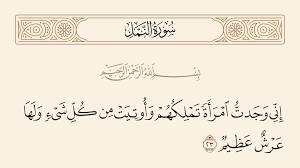 سُورَةُ النَّمْلِ
بِسْمِ اللَّهِ الرَّحْمَٰنِ الرَّحِيمِ
إِنِّي وَجَدتُّ ٱمْرَأَةً تَمْلِكُهُمْ وَأُوتِيَتْ مِن كُلِّ شَيْءٍ وَلَهَا
عَرْشٌ عَظِيمٌ ٢٣